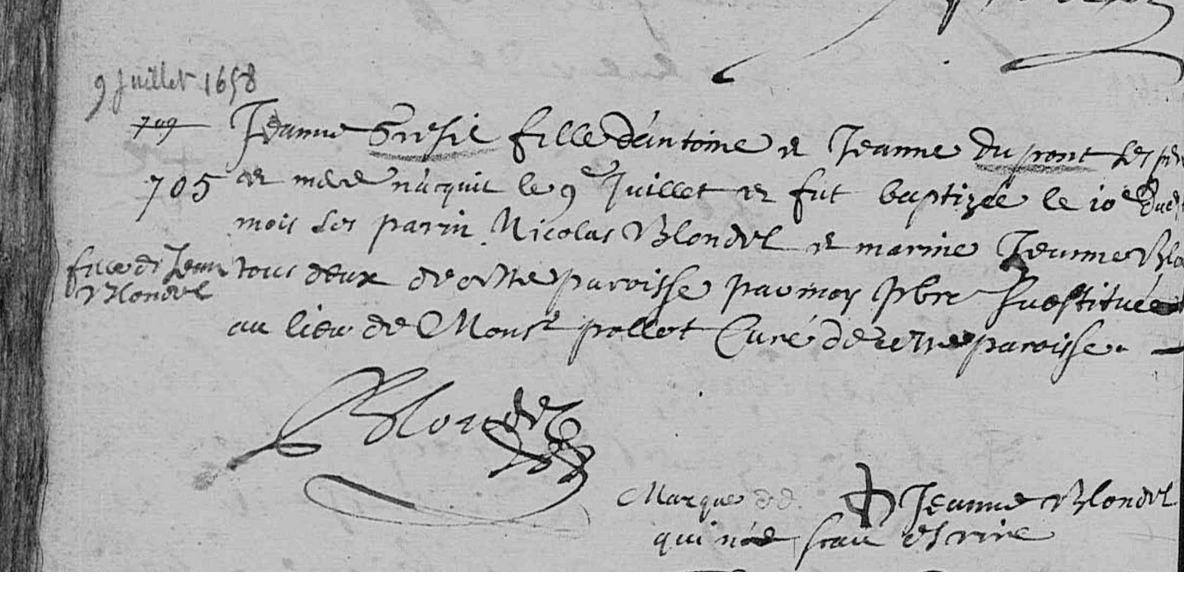 9 Juillet 1658
709
705
Jeanne Gresil fille d'antoine et Jeanne du pont ses per
et mere naquit le 9e Juillet et fut baptizée le 10e dud
mois Ses parin Nicolas Blondel et marine Jeanne Blo
fille de Jean
Blondel
tous deux de cette paroisse par moy Pbre Substitué
au lieu de Monsr pollet Curé de cette paroisse.
Blondel
Marque de Jeanne Blondel
qui ne scait escrire